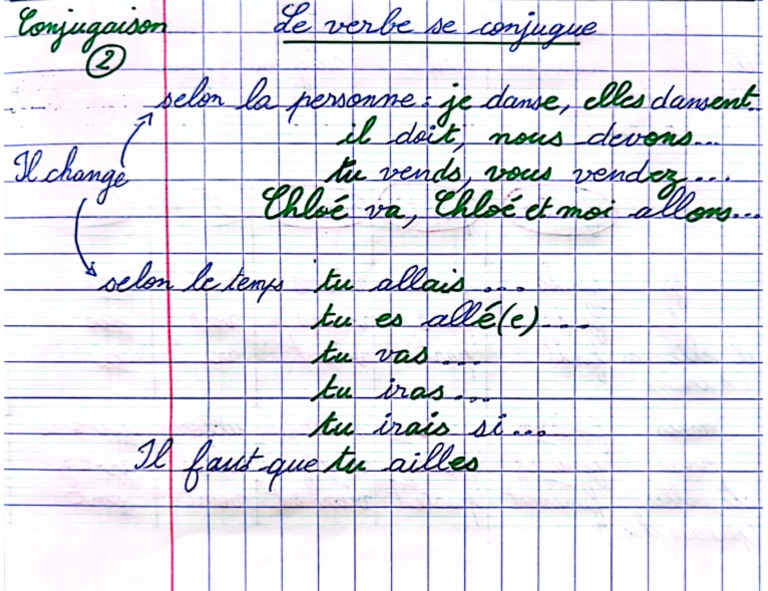 Conjugaison Le verbe se conjugue
②
selon la personne : je danse, elles dansent
il doit, nous devons...
Il change tu vends, vous vendez...
Chloé va, Chloé et moi allons...
selon le temps tu allais ...
tu es allé(e)...
tu vas ...
tu iras ...
tu irais si ...
Il faut que tu ailles